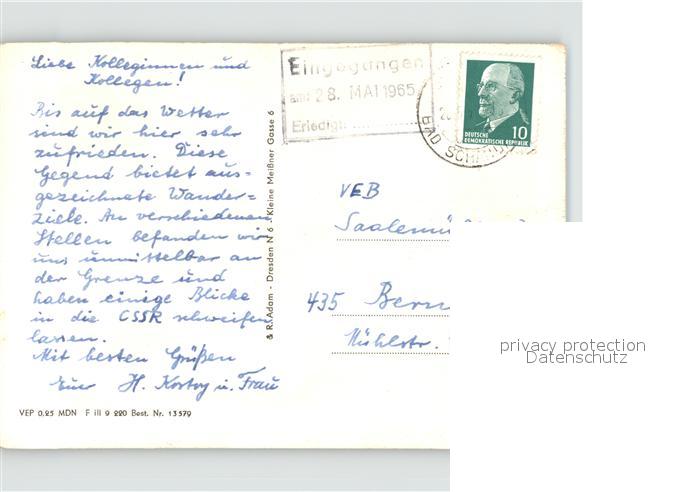 Liebe Kolleginnen und
Kollegen!
Bis auf das Wetter
sind wir hier sehr
zufrieden. Diese
Gegend bietet aus-
gezeichnete Wander=
ziele. An verschiedenen
Stellen befanden wir
uns unmittelbar an
der Grenze und
haben einige Blicke
in die CSSR schweifen
lassen.
Mit besten Grüßen
Euer H. u. Frau
VEP 0,25 MDN F III 9 220 Best. Nr. 13579
& R. Adam - Dresden N 6 - Kleine Meißner Gasse 6
Eingegangen
am: 28. MAI 1965
Erledigt:
BAD
10
DEUTSCHE
DEMOKRATISCHE REPUBLIK
VEB
435
Mühlstr.
privacy protection
Datenschutz